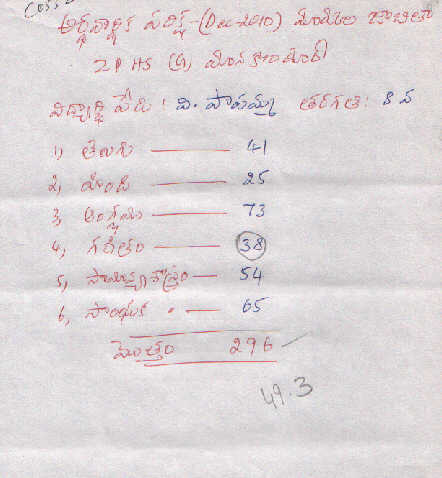 అర్ధవార్షిక పరీక్ష-(Dec-2010) మార్కుల జాబితా
ZPHS (G)
విద్యార్థి పేరు : వి. పాపమ్మ తరగతి: 8 వ
1) తెలుగు — 41
2, హింది — 25
3, ఆంగ్లము — 73
4, గణితం — 38
5, సామాన్యశాస్త్రం — 54
6, సాంఘిక " — 65
మొత్తం 296
49.3